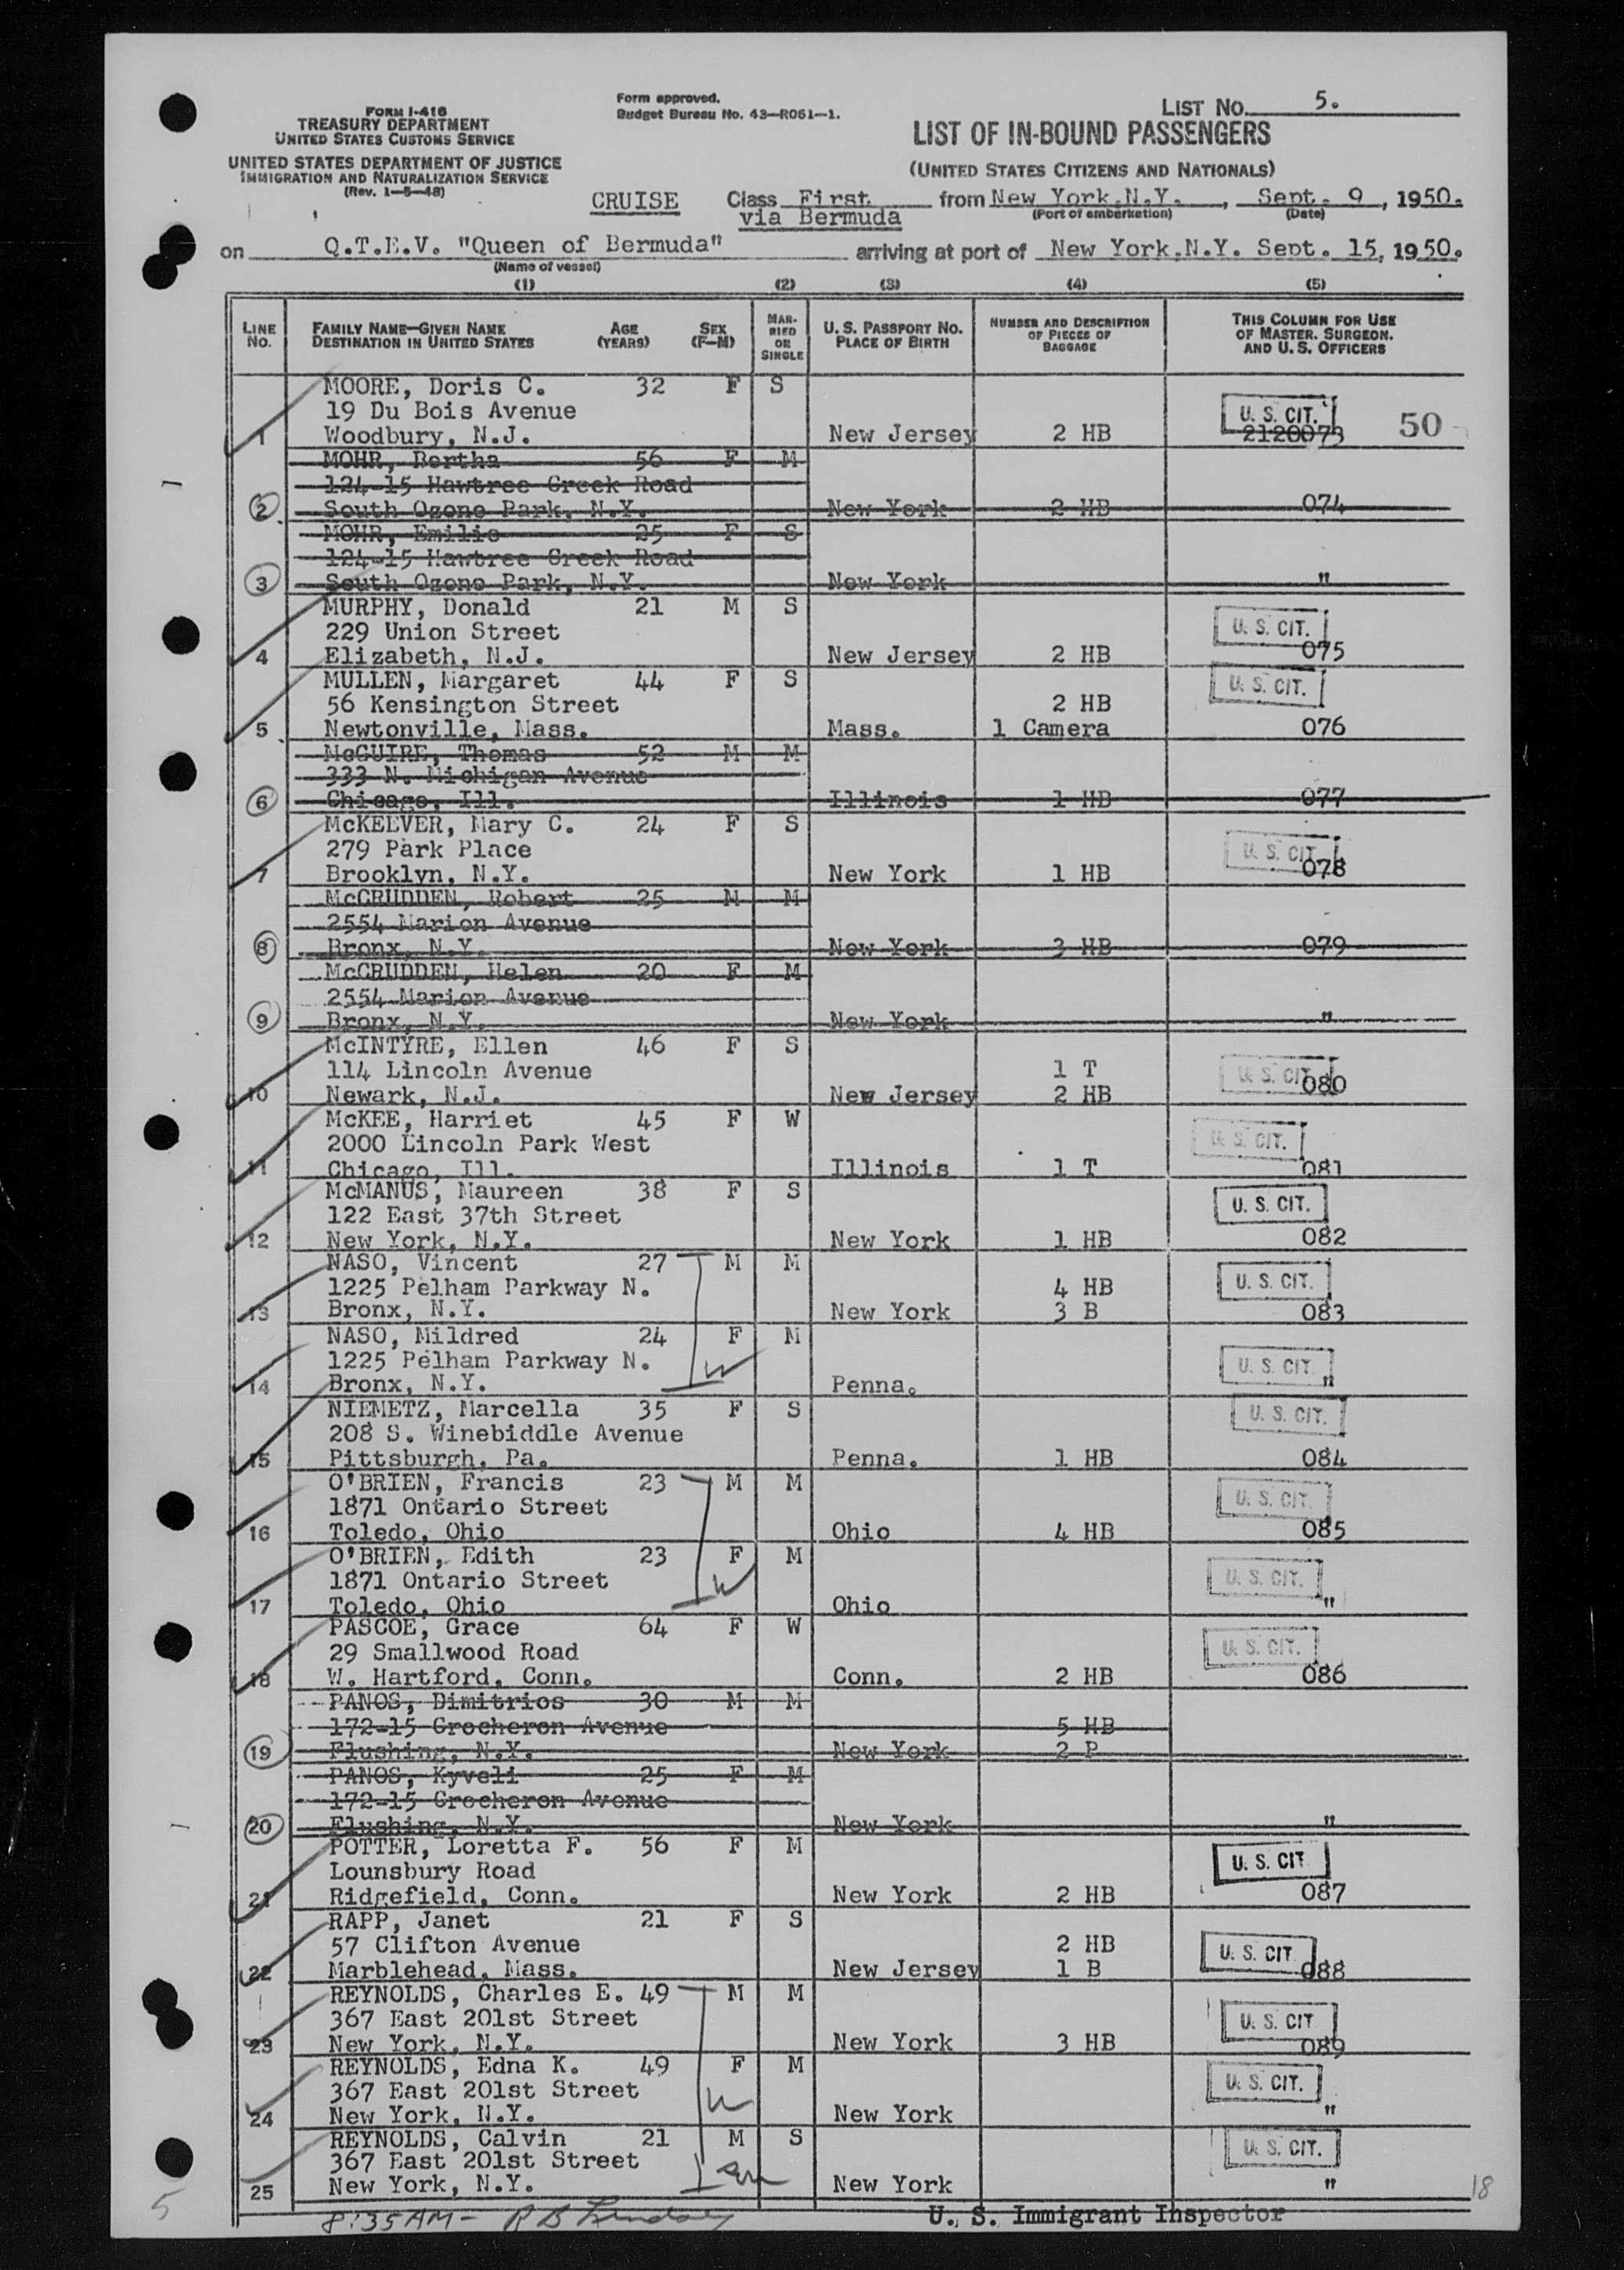 FORM I-416
TREASURY DEPARTMENT
UNITED STATES CUSTOMS SERVICE
UNITED STATES DEPARTMENT OF JUSTICE
IMMIGRATION AND NATURALIZATION SERVICE
(Rev. 1-5-48)
Form approved.
Budget Bureau No. 43-R061-1.
LIST No. 5.
LIST OF IN-BOUND PASSENGERS
(UNITED STATES CITIZENS AND NATIONALS)
CRUISE Class First from New York,N.Y., Sept. 9, 1950.
via Bermuda (Port of embarkation) (Date)
on Q.T.E.V. "Queen of Bermuda" arriving at port of New York,N.Y. Sept. 15, 1950.
(Name of vessel)
(1) (2) (3) (4) (5)
LINE No. FAMILY NAME—GIVEN NAME DESTINATION IN UNITED STATES AGE (YEARS) SEX (F—M) MARRIED OR SINGLE U. S. PASSPORT No. PLACE OF BIRTH NUMBER AND DESCRIPTION OF PIECES OF BAGGAGE THIS COLUMN FOR USE OF MASTER, SURGEON, AND U. S. OFFICERS
MOORE, Doris C. 32 F S
19 Du Bois Avenue U. S. CIT. 50
1 Woodbury, N.J. New Jersey 2 HB 2120073
MOHR, Bertha 56 F M
124-15 Hawtree Creek Road
2 South Ozone Park, N.Y. New York 2 HB 074
MOHR, Emilie 25 F S
124-15 Hawtree Creek Road
3 South Ozone Park, N.Y. New York "
MURPHY, Donald 21 M S
229 Union Street U. S. CIT.
4 Elizabeth, N.J. New Jersey 2 HB 075
MULLEN, Margaret 44 F S U. S. CIT.
56 Kensington Street 2 HB
5 Newtonville, Mass. Mass. 1 Camera 076
McGUIRE, Thomas 52 M M
333 N. Michigan Avenue
6 Chicago, Ill. Illinois 1 HB 077
McKEEVER, Mary C. 24 F S
279 Park Place U. S. CIT.
7 Brooklyn, N.Y. New York 1 HB 078
McCRUDDEN, Robert 25 M M
2554 Marion Avenue
8 Bronx, N.Y. New York 3 HB 079
McCRUDDEN, Helen 20 F M
2554 Marion Avenue
9 Bronx, N.Y. New York "
McINTYRE, Ellen 46 F S
114 Lincoln Avenue 1 T U. S. CIT.
10 Newark, N.J. New Jersey 2 HB 080
McKEE, Harriet 45 F W
2000 Lincoln Park West U. S. CIT.
11 Chicago, Ill. Illinois 1 T 081
McMANUS, Maureen 38 F S
122 East 37th Street U. S. CIT.
12 New York, N.Y. New York 1 HB 082
NASO, Vincent 27 M M
1225 Pelham Parkway N. 4 HB U. S. CIT.
13 Bronx, N.Y. New York 3 B 083
NASO, Mildred 24 F M
1225 Pelham Parkway N. W U. S. CIT.
14 Bronx, N.Y. Penna. "
NIEMETZ, Marcella 35 F S U. S. CIT.
208 S. Winebiddle Avenue
15 Pittsburgh, Pa. Penna. 1 HB 084
O'BRIEN, Francis 23 M M
1871 Ontario Street U. S. CIT.
16 Toledo, Ohio Ohio 4 HB 085
O'BRIEN, Edith 23 F M
1871 Ontario Street W U. S. CIT.
17 Toledo, Ohio Ohio "
PASCOE, Grace 64 F W
29 Smallwood Road U. S. CIT.
18 W. Hartford, Conn. Conn. 2 HB 086
PANOS, Dimitrios 30 M M
172-15 Crocheron Avenue 5 HB
19 Flushing, N.Y. New York 2 P
PANOS, Kyveli 25 F M
172-15 Crocheron Avenue
20 Flushing, N.Y. New York "
POTTER, Loretta F. 56 F M
Lounsbury Road U. S. CIT
21 Ridgefield, Conn. New York 2 HB 087
RAPP, Janet 21 F S
57 Clifton Avenue 2 HB U. S. CIT
22 Marblehead, Mass. New Jersey 1 B 088
REYNOLDS, Charles E. 49 M M
367 East 201st Street U. S. CIT
23 New York, N.Y. New York 3 HB 089
REYNOLDS, Edna K. 49 F M
367 East 201st Street W U. S. CIT.
24 New York, N.Y. New York "
REYNOLDS, Calvin 21 M S
367 East 201st Street Son U. S. CIT.
25 New York, N.Y. New York " 18
5 8:35AM- R B Lindsay U. S. Immigrant Inspector